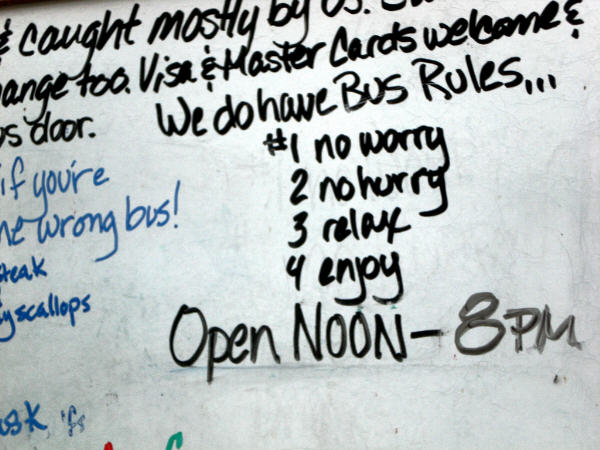 & caught mostly by us.
ange too. Visa & Master Cards welcome &
us door.
We do have Bus Rules...
#1 no worry
2 no hurry
3 relax
4 enjoy
Open NOON - 8PM
if you're
he wrong bus!
steak
y scallops